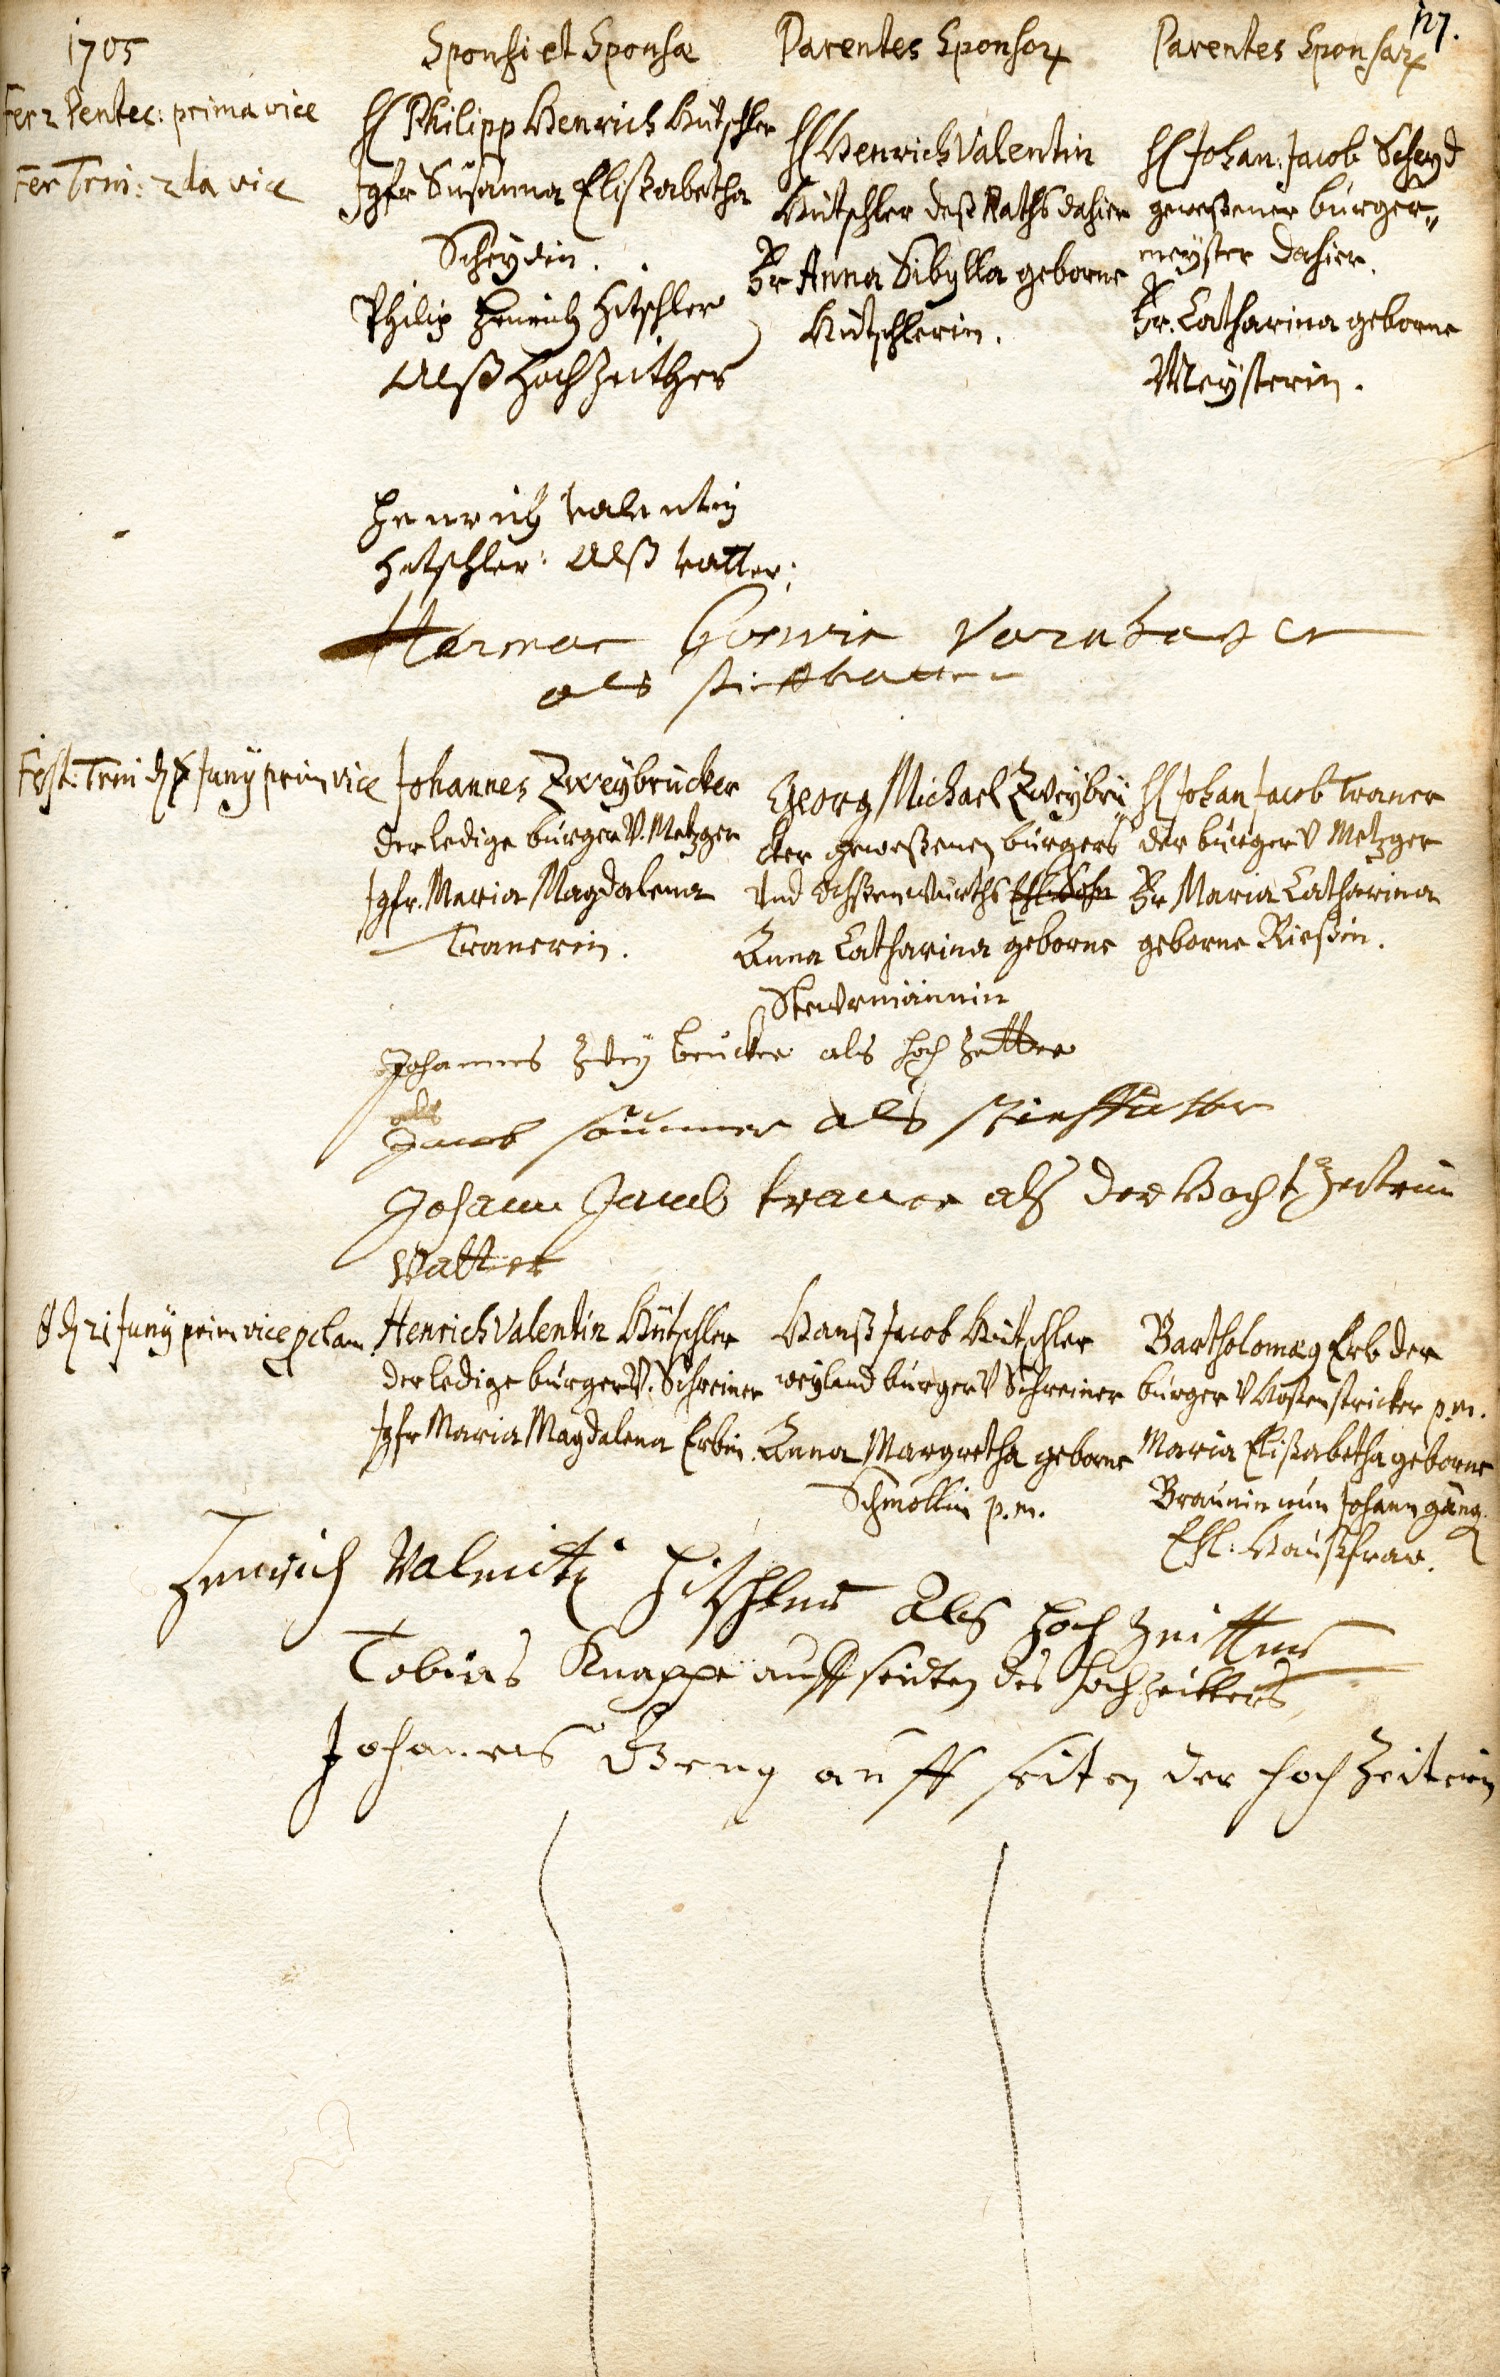 127.
1705
Sponsi et Sponsæ
Parentes Sponsor
Parentes Sponsar
Fer 2 Pentec: prima vice
Fer Trin: 2da vice
H Philipp Henrich Hütschler
Jgfr Susanna Elisabetha
Scheydin.
Philip Henrich Hitschler
Alß Hochzeither
H Henrich Valentin
Hütschler deß Raths dahier
Fr Anna Sibylla geborne
Hütschlerin.
H Johan: Jacob Scheyd
geweßener burger„
meyster dahier.
Fr. Catharina geborne
Meysterin.
Henrich Valentin
Hitschler: Alß Vatter;
als stiffvatter
Fest: Trin d Juny prim vice
Johannes Zweybrücker
der ledige burger V. Metzger
Jgfr. Maria Magdalena
Tranerin.
Georg Michael Zweybrü„
cker geweßenen burgers
Und Ochßenwürths Ehl. Sohn
Anna Catharina geborne
Stewrmännin
H Johan Jacob Traner
der burger V Metzger
Fr Maria Catharina
geborne Rießin.
Johannes Zwey brücker als Hoch Zetter
als
Jacob als Stieffvatter
Johann Jacob traner als der Hocht Zeiterin
Vatter
d 21 Juny prim vice pclam.
Henrich Valentin Hütschler
der ledige burger V. Schreiner
Jgfr Maria Magdalena Erbin.
Hanß Jacob Hütschler
weyland burger V Schreiner
Anna Margretha geborne
Schmollin p.m.
Bartholomæ Erb der
burger V Hoßenstricker p.m.
Maria Elisabetha geborne
Braunin nun Johann Gäng.
Ehl: Haußfraw.
Henrich Valenti Hitschler Als Hoch Zeitter
Tobias Knappe auff seidten des Hochzeitters
Johannes Geng auff seiten der Hoch Zeiterin